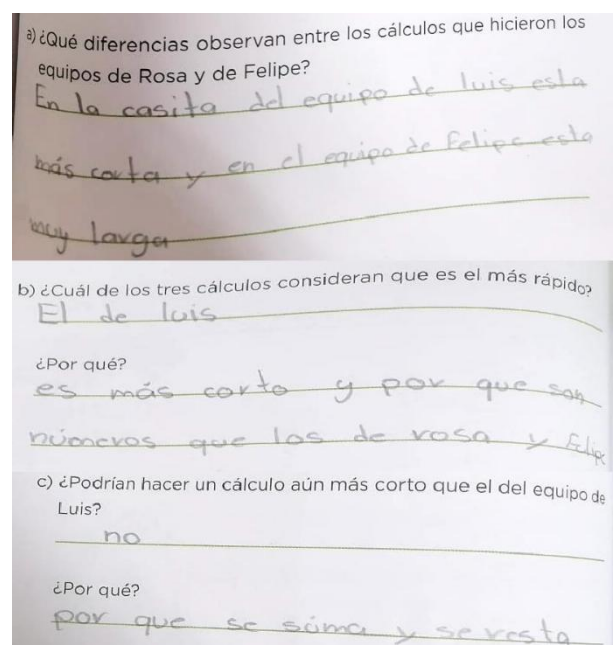 a) ¿Qué diferencias observan entre los cálculos que hicieron los
equipos de Rosa y de Felipe?
En la casita del equipo de luis esta
más corta y en el equipo de Felipe esta
muy larga
b) ¿Cuál de los tres cálculos consideran que es el más rápido?
El de luis
¿Por qué?
es más corto y por que son
números que los de rosa y Felipe
c) ¿Podrían hacer un cálculo aún más corto que el del equipo de
Luis?
no
¿Por qué?
por que se súma y se resta